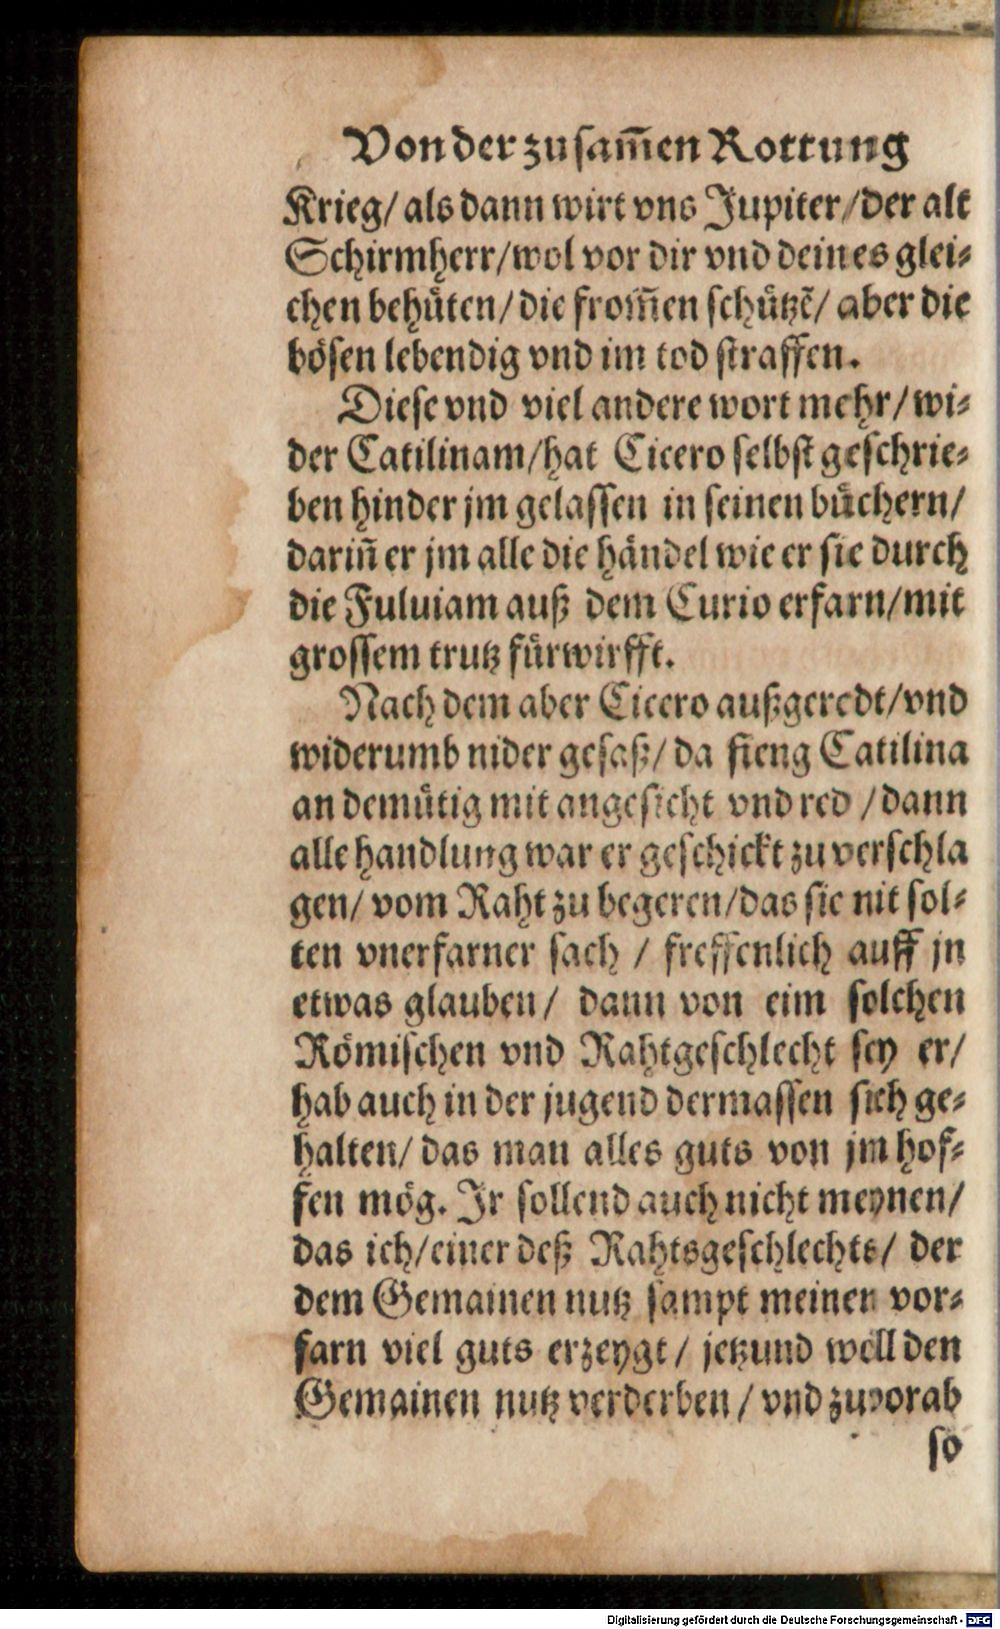 Von der zusam̃en Rottung
Krieg/ als dann wirt vns Jupiter/der alt
Schirmherr/wol vor dir vnd deines glei⸗
chen behuͤten/ die from̃en schuͤtzẽ/ aber die
boͤsen lebendig vnd im tod straffen.
Diese vnd viel andere wort mehr/ wi⸗
der Catilinam/hat Cicero selbst geschrie⸗
ben hinder jm gelassen in seinen buͤchern/
dariñ er jm alle die haͤndel wie er sie durch
die Fuluiam auß dem Curio erfarn/mit
grossem trutz fuͤrwirfft.
Nach dem aber Cicero außgeredt/vnd
widerumb nider gesaß/ da fieng Catilina
an demuͤtig mit angesicht vnd red /dann
alle handlung war er geschickt zu verschla
gen/ vom Raht zu begeren/das sie nit sol⸗
ten vnerfarner sach / freffenlich auff jn
etwas glauben/ dann von eim solchen
Roͤmischen vnd Rahtgeschlecht sey er/
hab auch in der jugend dermassen sich ge⸗
halten/ das man alles guts von jm hof⸗
fen moͤg. Jr sollend auch nicht meynen/
das ich/einer deß Rahtsgeschlechts/ der
dem Gemainen nutz sampt meinen vor⸗
farn viel guts erzeygt/ jetzund woͤll den
Gemainen nutz verderben / vnd zuvorab
so
Digitalisierung gefördert durch die Deutsche Forschungsgemeinschaft - DFG